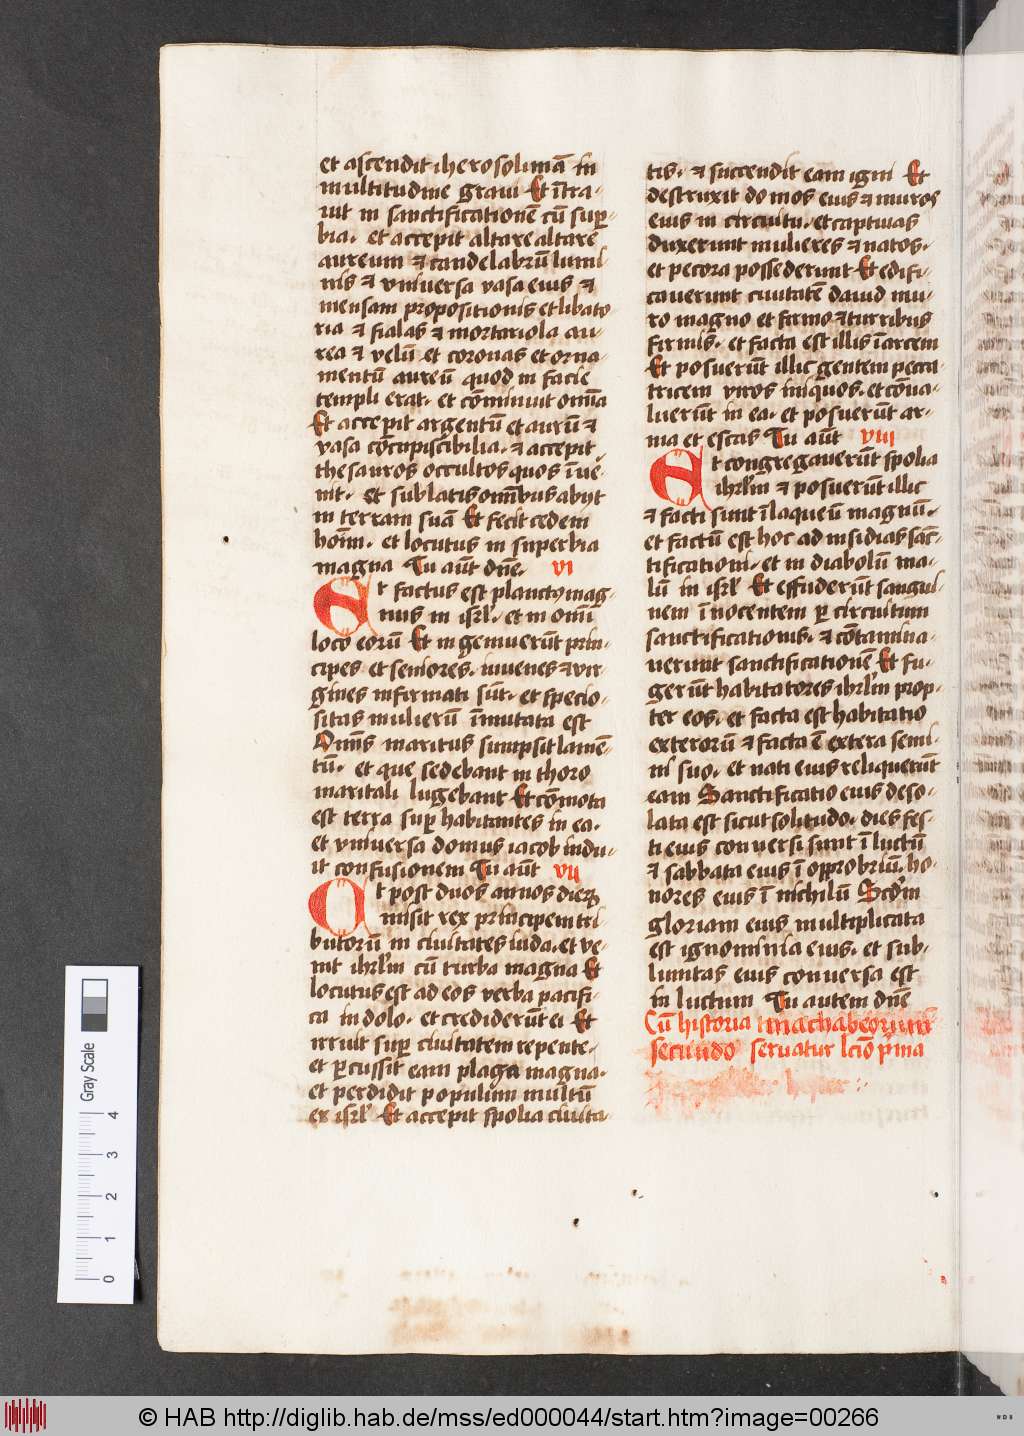 et ascendit iherosolimā in
multitudine graui Et ītra-
uit in sanctificationē cū suꝑ-
bia. et accepit altare altare
aureum ⁊ candelabrū lumi
nis ⁊ vniuersa vasa eius ⁊
mensam propositionis et libato
ria ⁊ fialas ⁊ mortariola au-
rea ⁊ velū et coronas et orna-
mentū aureū quod in facie
templi erat. et cōminuit omīa
Et accepit argentū et aurū ⁊
vasa cōcupiscibilia. ⁊ accepit
thesauros occultos quos īuē-
nit. et sublatis omībus abijt
in terram suā Et fecit cedem
hoīm. et locutus in superbia
magna Tu aūt dn̄e. vi
Et factus est planctꝰ mag-
nus in isrl̄. et in omī
loco eorū Et ingemuerūt prin-
cipes et seniores. iuuenes ⁊ vir-
gines infirmati sūt. et specio-
sitas mulierū īmutata est
Omīs maritus sumpsit lamē-
tū. et que sedebant in thoro
maritali lugebant Et cōmota
est terra suꝑ habitantes in ea.
et vniuersa domus iacob indu-
it confusionem Tu aūt vij
Et post duos annos dieꝝ
misit rex principem tri
butorū in ciuitates iuda. et ve-
nit ihrl̄m cū turba magna Et
locutus est ad eos verba pacifi-
ca in dolo. et crediderūt ei Et
irruit suꝑ ciuitatem repente.
et ꝑcussit eam plaga magna.
et perdidit populum multū
ex isrl̄ Et accepit spolia ciuita
tis. ⁊ succendit eam igni Et
destruxit domos eius ⁊ muros
eius in circuitu. et captiuas
duxerunt mulieres ⁊ natos.
et pecora possederunt Et edifi-
cauerunt ciuitatē dauid mu-
ro magno et firmo ⁊ turribus
firmis. et facta est illis ī arcem
Et posuerūt illic gentem pecca
tricem viros iniquos. et cōua-
luerūt in ea. et posuerūt ar-
ma et escas Tu aūt viii
Et congregauerūt spolia
ihrl̄m ⁊ posuerūt illic
⁊ facti sunt ī laqueū magnū.
et factū est hoc ad insidias sāc-
tificationi. et in diabolū ma-
lū in isrl̄ Et effuderūt sangui-
nem īnocentem ꝑ circuitum
sanctificationis. ⁊ cōtamina-
uerunt sanctificationē Et fu-
gerūt habitatores ihrl̄m prop-
ter eos. et facta est habitatio
exterorū ⁊ facta ē extera semi-
ni suo. et nati eius reliquerūt
eam Sanctificatio eius deso-
lata est sicut solitudo. dies fes-
ti eius conuersi sunt ī luctū
⁊ sabbata eius ī opprobriū. ho-
nores eius ī nichilū Scd̄m
gloriam eius multiplicata
est ignominia eius. et sub-
limitas eius conuersa est
in luctum Tu autem dn̄e
Cū historia machabeorum
secundo seruatur lcīo p̄ma
Gray Scale
0 1 2 3 4
© HAB http://diglib.hab.de/mss/ed000044/start.htm?image=00266